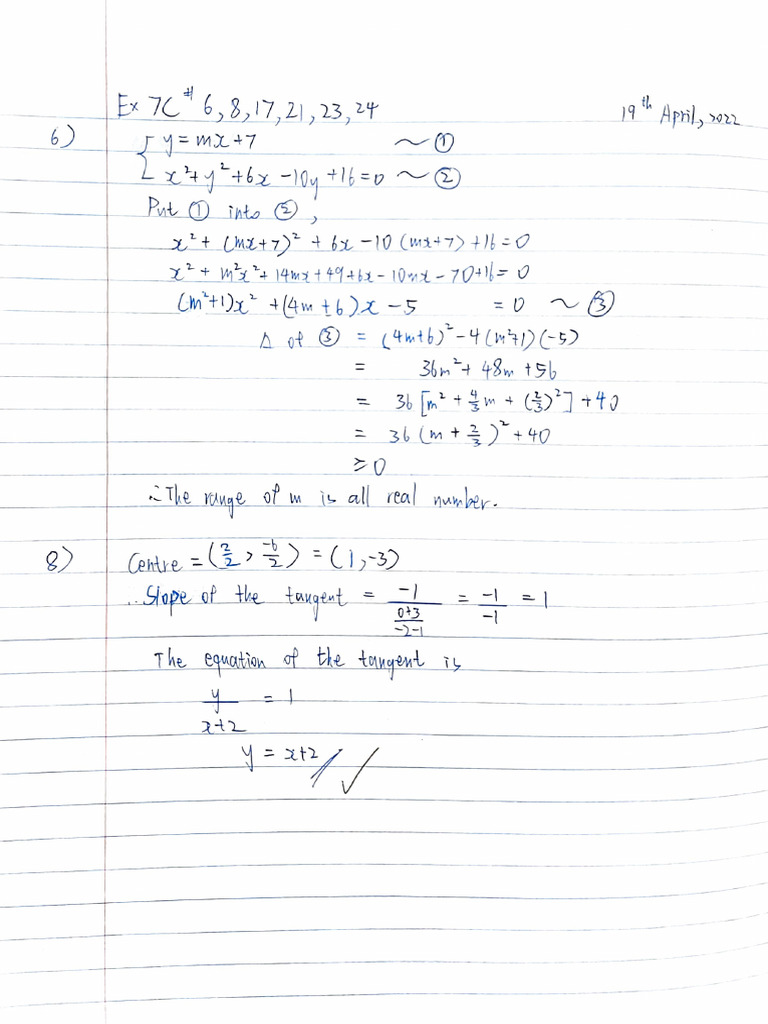 Ex 7C # 6, 8, 17, 21, 23, 24
19th April, 2022
6) { y = mx + 7 ~ ①
x² + y² + 6x - 10y + 16 = 0 ~ ②
Put ① into ②,
x² + (mx+7)² + 6x - 10(mx+7) + 16 = 0
x² + m²x² + 14mx + 49 + 6x - 10mx - 70 + 16 = 0
(m²+1)x² + (4m+6)x - 5 = 0 ~ ③
Δ of ③ = (4m+6)² - 4(m²+1)(-5)
= 36m² + 48m + 56
= 36[m² + 4/3 m + (2/3)²] + 40
= 36(m + 2/3)² + 40
≥ 0
∴ The range of m is all real number.
8) Centre = (2/2, -6/2) = (1, -3)
∴ Slope of the tangent = -1/((0+3)/(-2-1)) = -1/-1 = 1
The equation of the tangent is
y/(x+2) = 1
y = x+2 // ✓